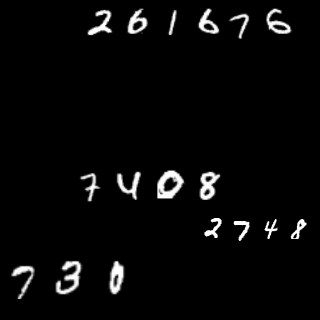 261676
7408
2748
730